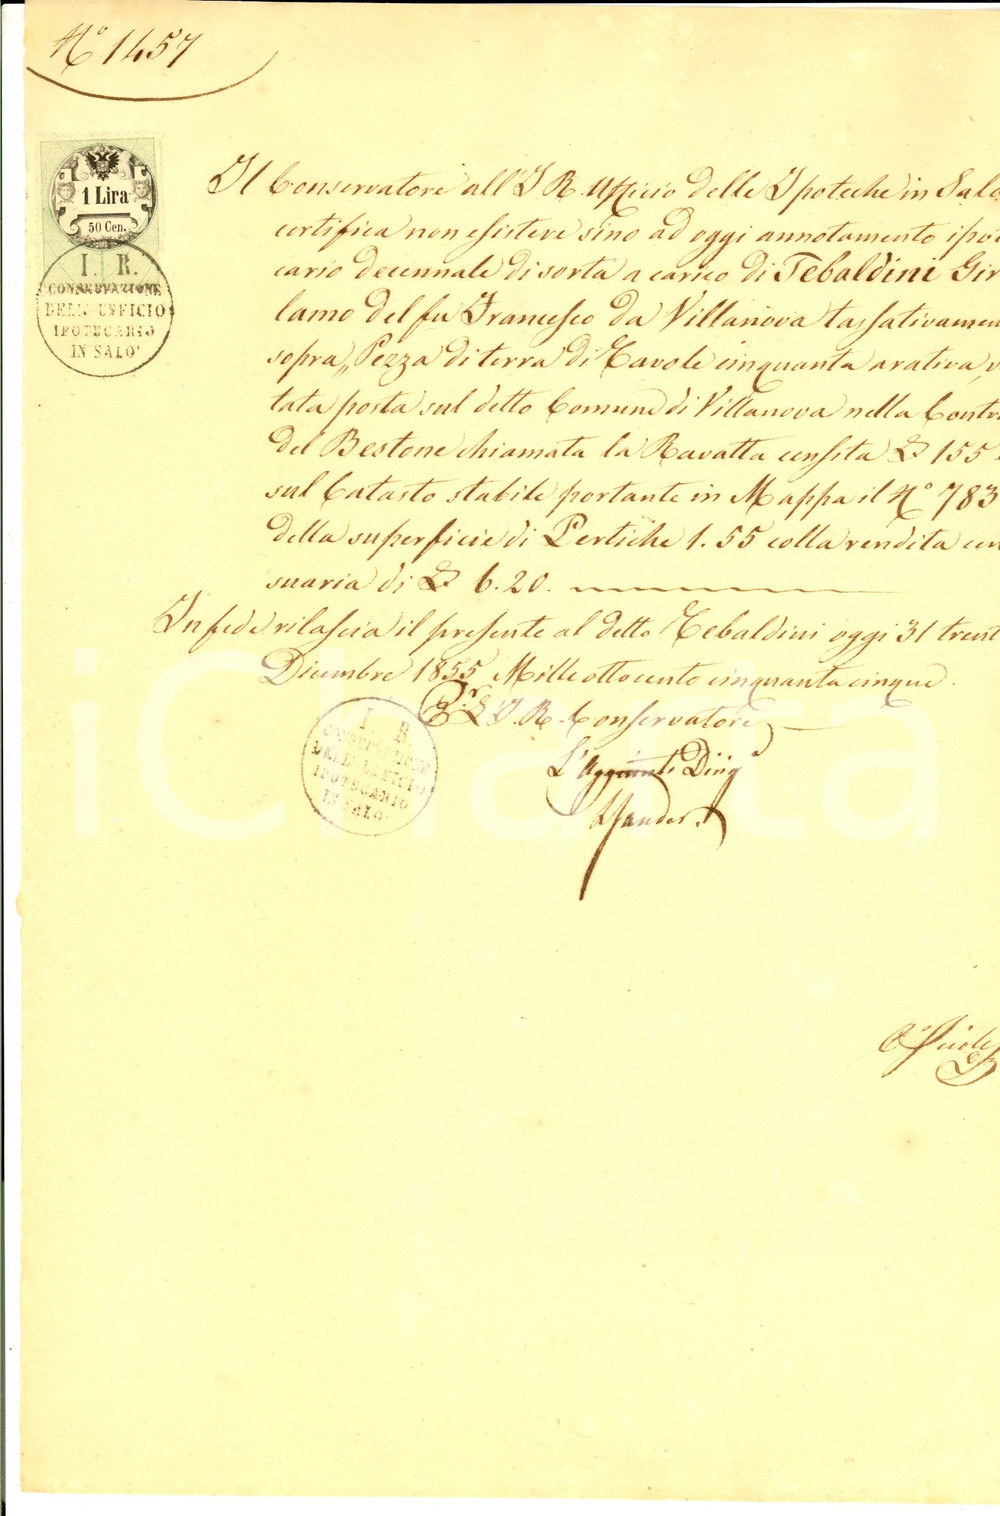 N.° 1457
1 Lira
50 Cen.
I. R.
CONSERVAZIONE
DELL' UFFICIO
IPOTECARIO
IN SALO'
Il Conservatore all' I. R. Ufficio delle Ipoteche in Salò
certifica non esistere sino ad oggi annotamento ipote
cario decennale di sorta a carico di Tebaldini Giro
lamo del fu Francesco da Villanova tassativamen
sopra „ Pezza di terra di Tavole cinquanta arativa, v
tata posta sul detto Comune di Villanova nella Contr
del Bestone chiamata la Ravatta censita £ 155
sul Catasto stabile portante in Mappa il N.° 783
della superficie di Pertiche 1. 55 colla rendita cen
suaria di £ 6. 20.
In fede rilascia il presente al detto Tebaldini oggi 31 trent
Dicembre 1855 Mille ottocento cinquantacinque.
P.r L'I. R. Conservatore
L'Aggiunto Dirig
I. R.
CONSERVAZIONE
DELL' UFFICIO
IPOTECARIO
IN SALO'
iCharta